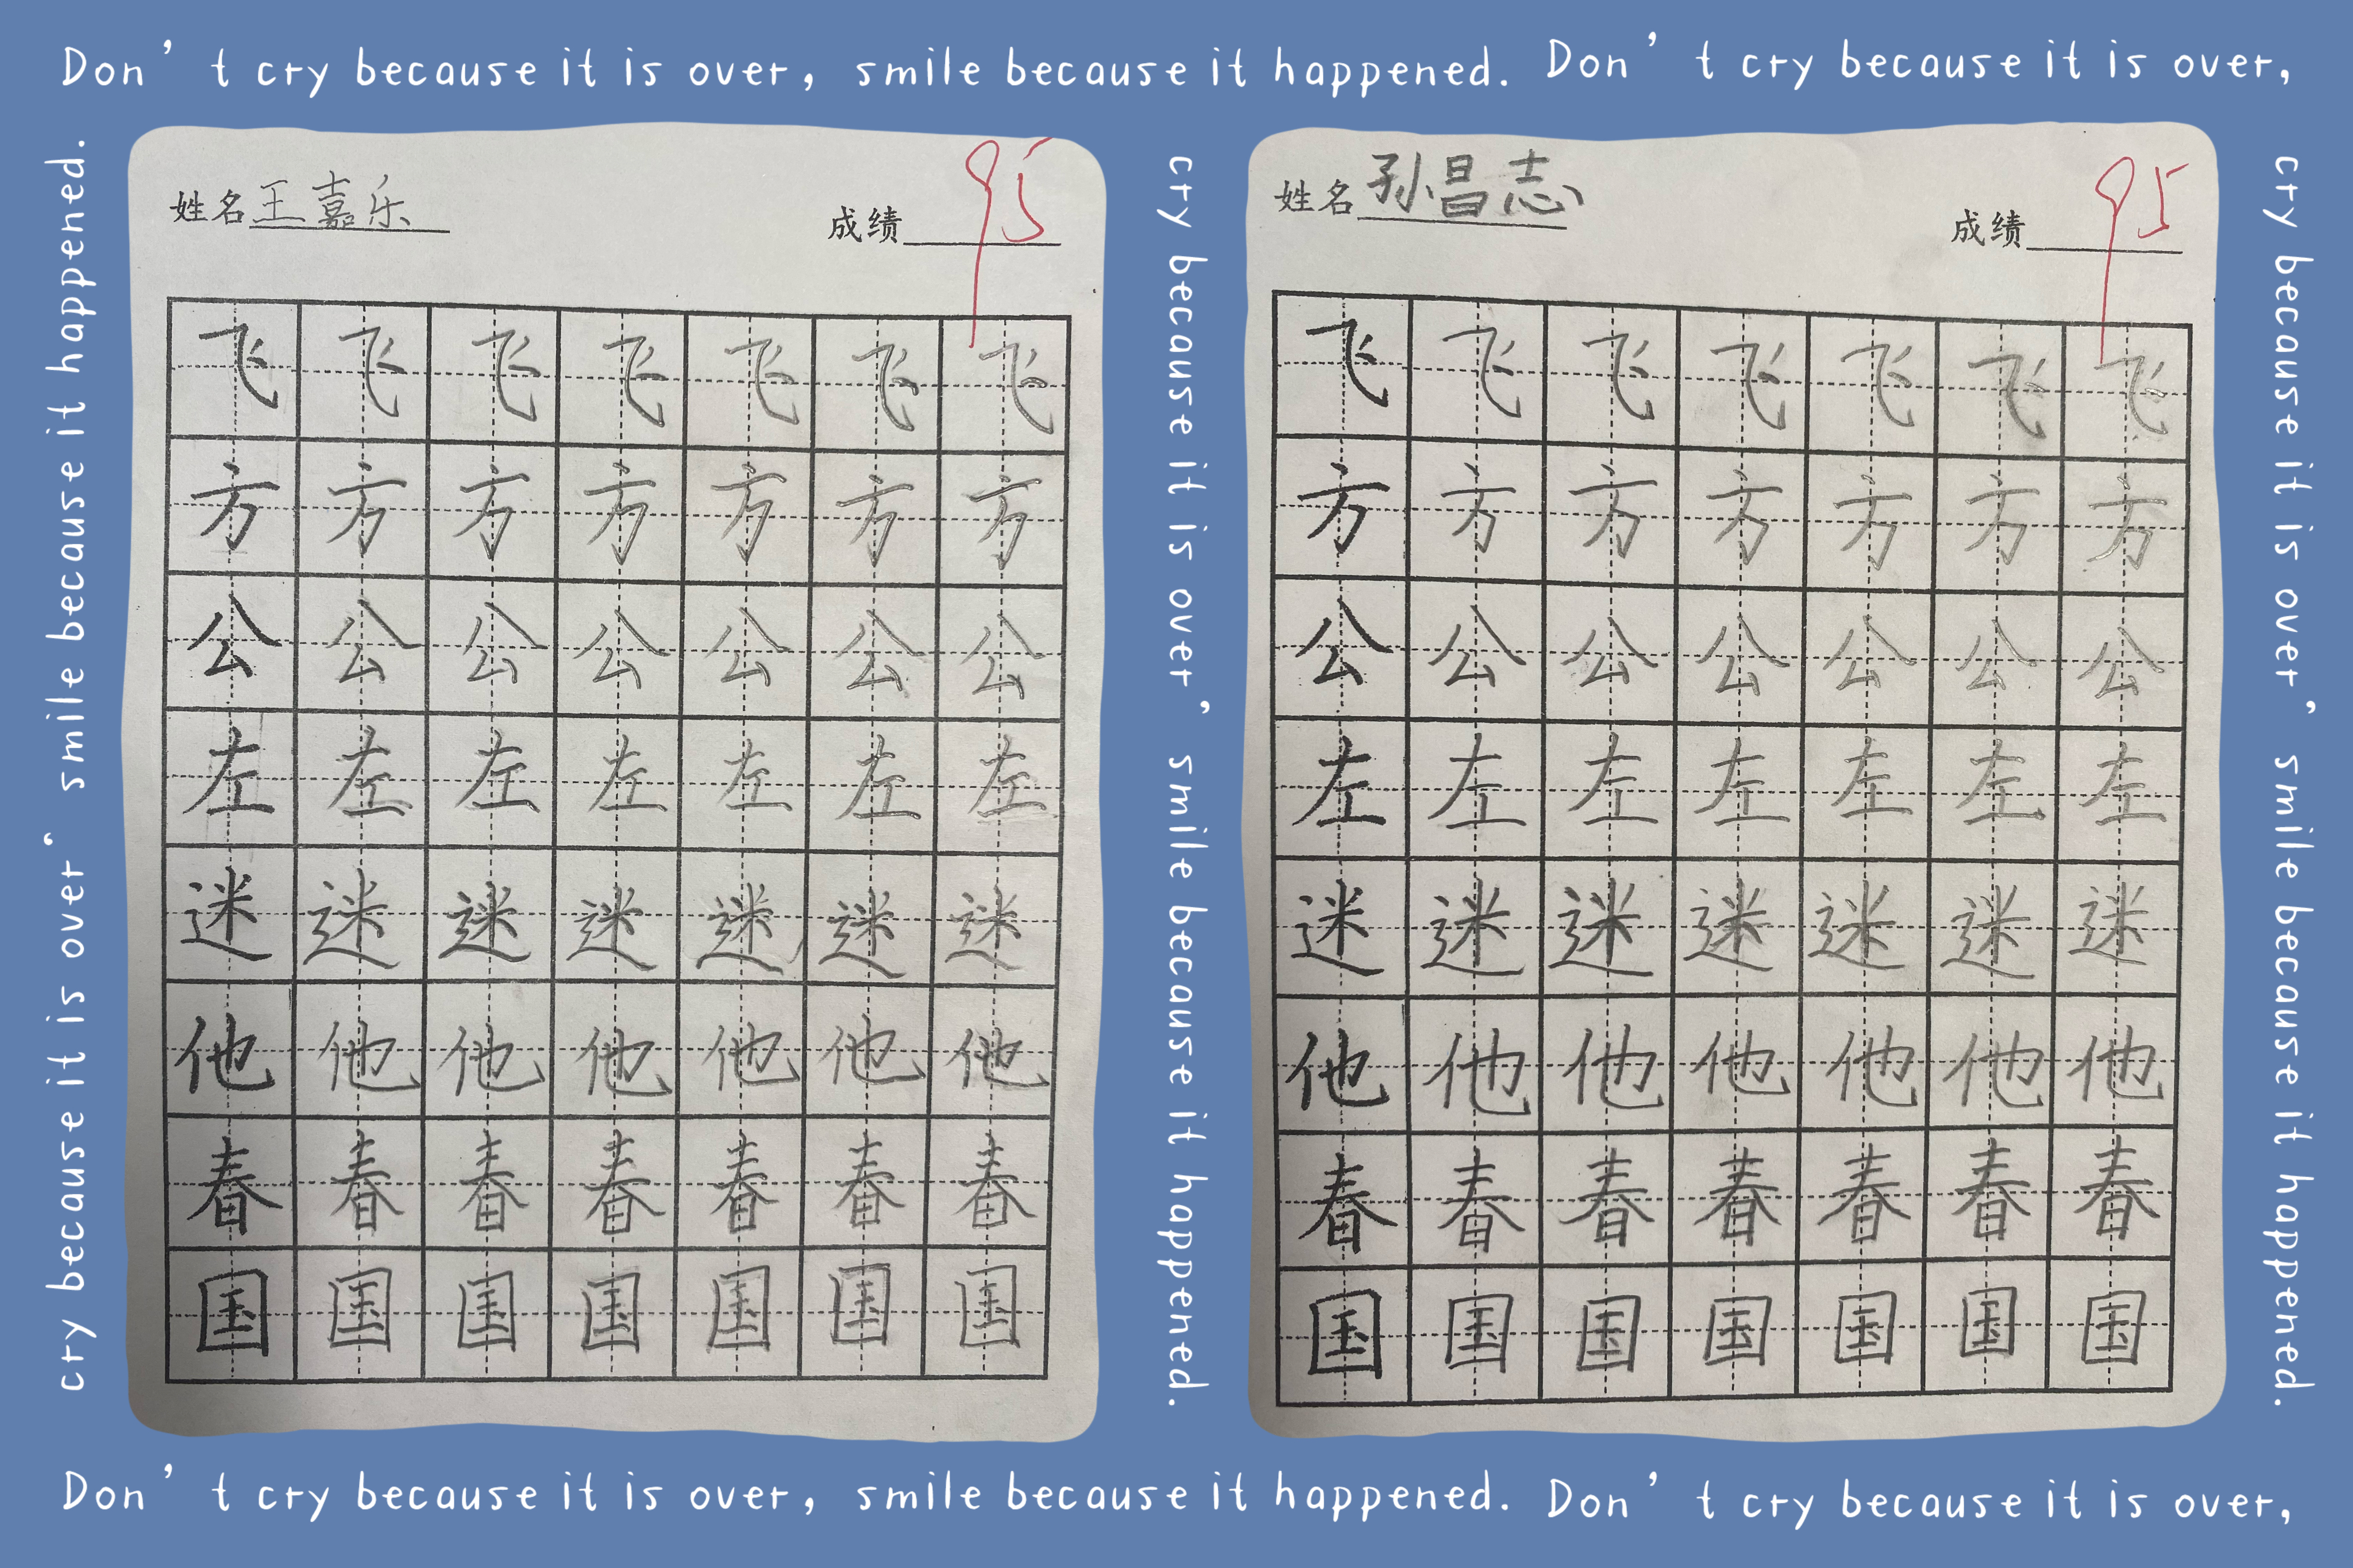 Don't cry because it is over, smile because it happened. Don't cry because it is over,
cry because it is over, smile because it happened.
姓名王嘉乐 成绩95
飞飞飞飞飞飞飞
方方方方方方方
公公公公公公公
左左左左左左左
迷迷迷迷迷迷迷
他他他他他他他
春春春春春春春
国国国国国国国
cry because it is over, smile because it happened.
姓名孙昌志 成绩95
飞飞飞飞飞飞飞
方方方方方方方
公公公公公公公
左左左左左左左
迷迷迷迷迷迷迷
他他他他他他他
春春春春春春春
国国国国国国国
cry because it is over, smile because it happened.
Don't cry because it is over, smile because it happened. Don't cry because it is over,